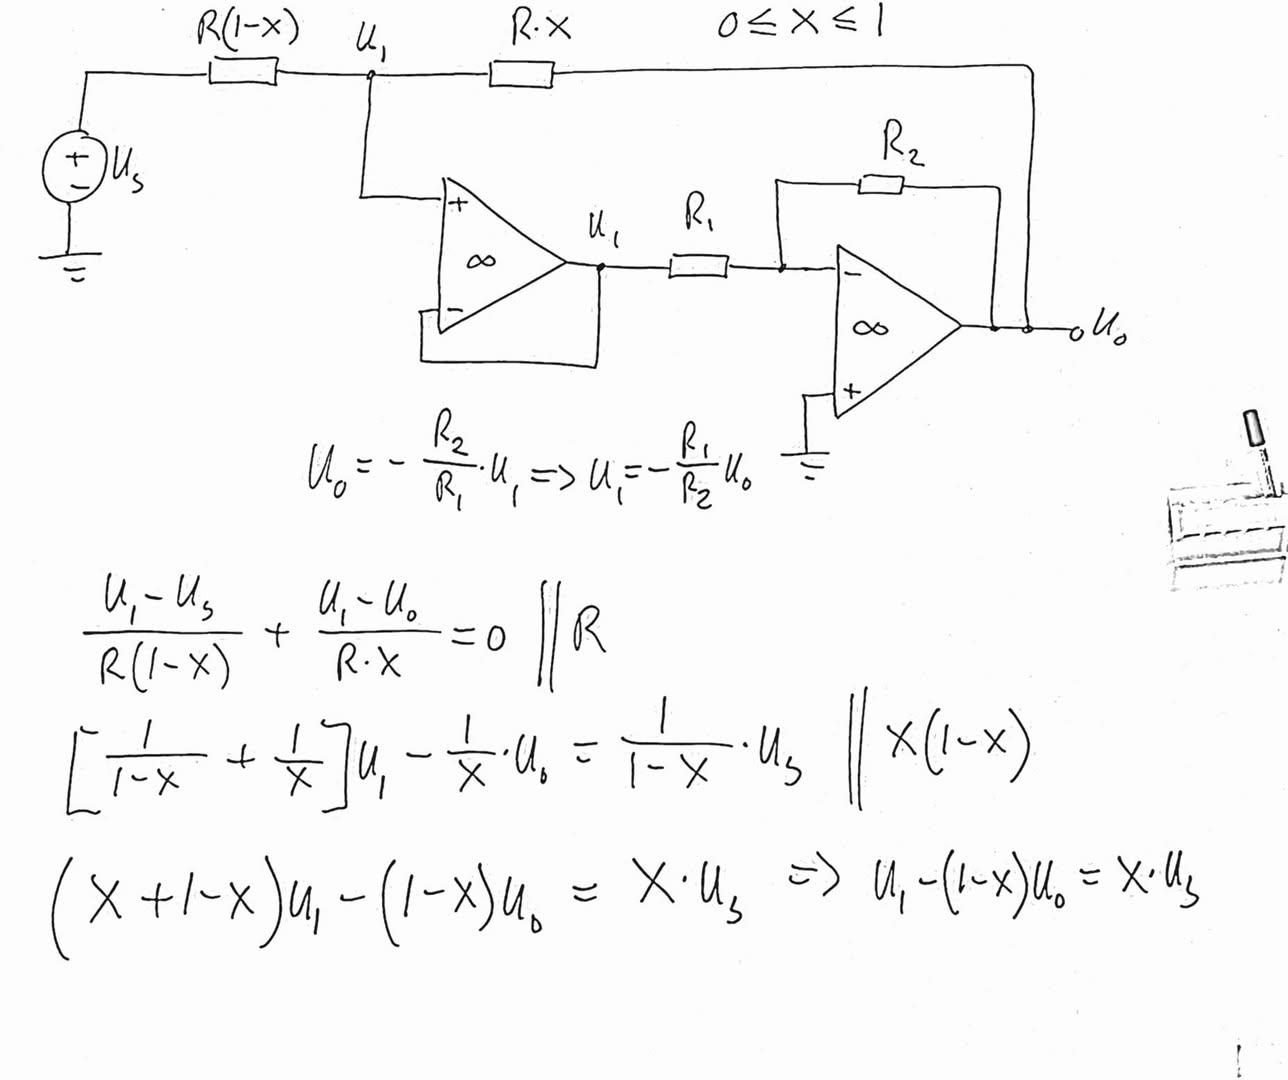 R(1-x) U₁ R·x 0 ≤ x ≤ 1
+ - Uₛ
R₂
+ ∞ - U₁ R₁
- ∞ + U₀
U₀ = - R₂/R₁ · U₁ => U₁ = - R₁/R₂ U₀
(U₁ - Uₛ)/(R(1-x)) + (U₁ - U₀)/(R·x) = 0 || R
[1/(1-x) + 1/x] U₁ - 1/x · U₀ = 1/(1-x) · Uₛ || x(1-x)
(x + 1-x)U₁ - (1-x)U₀ = x·Uₛ => U₁ - (1-x)U₀ = x·Uₛ